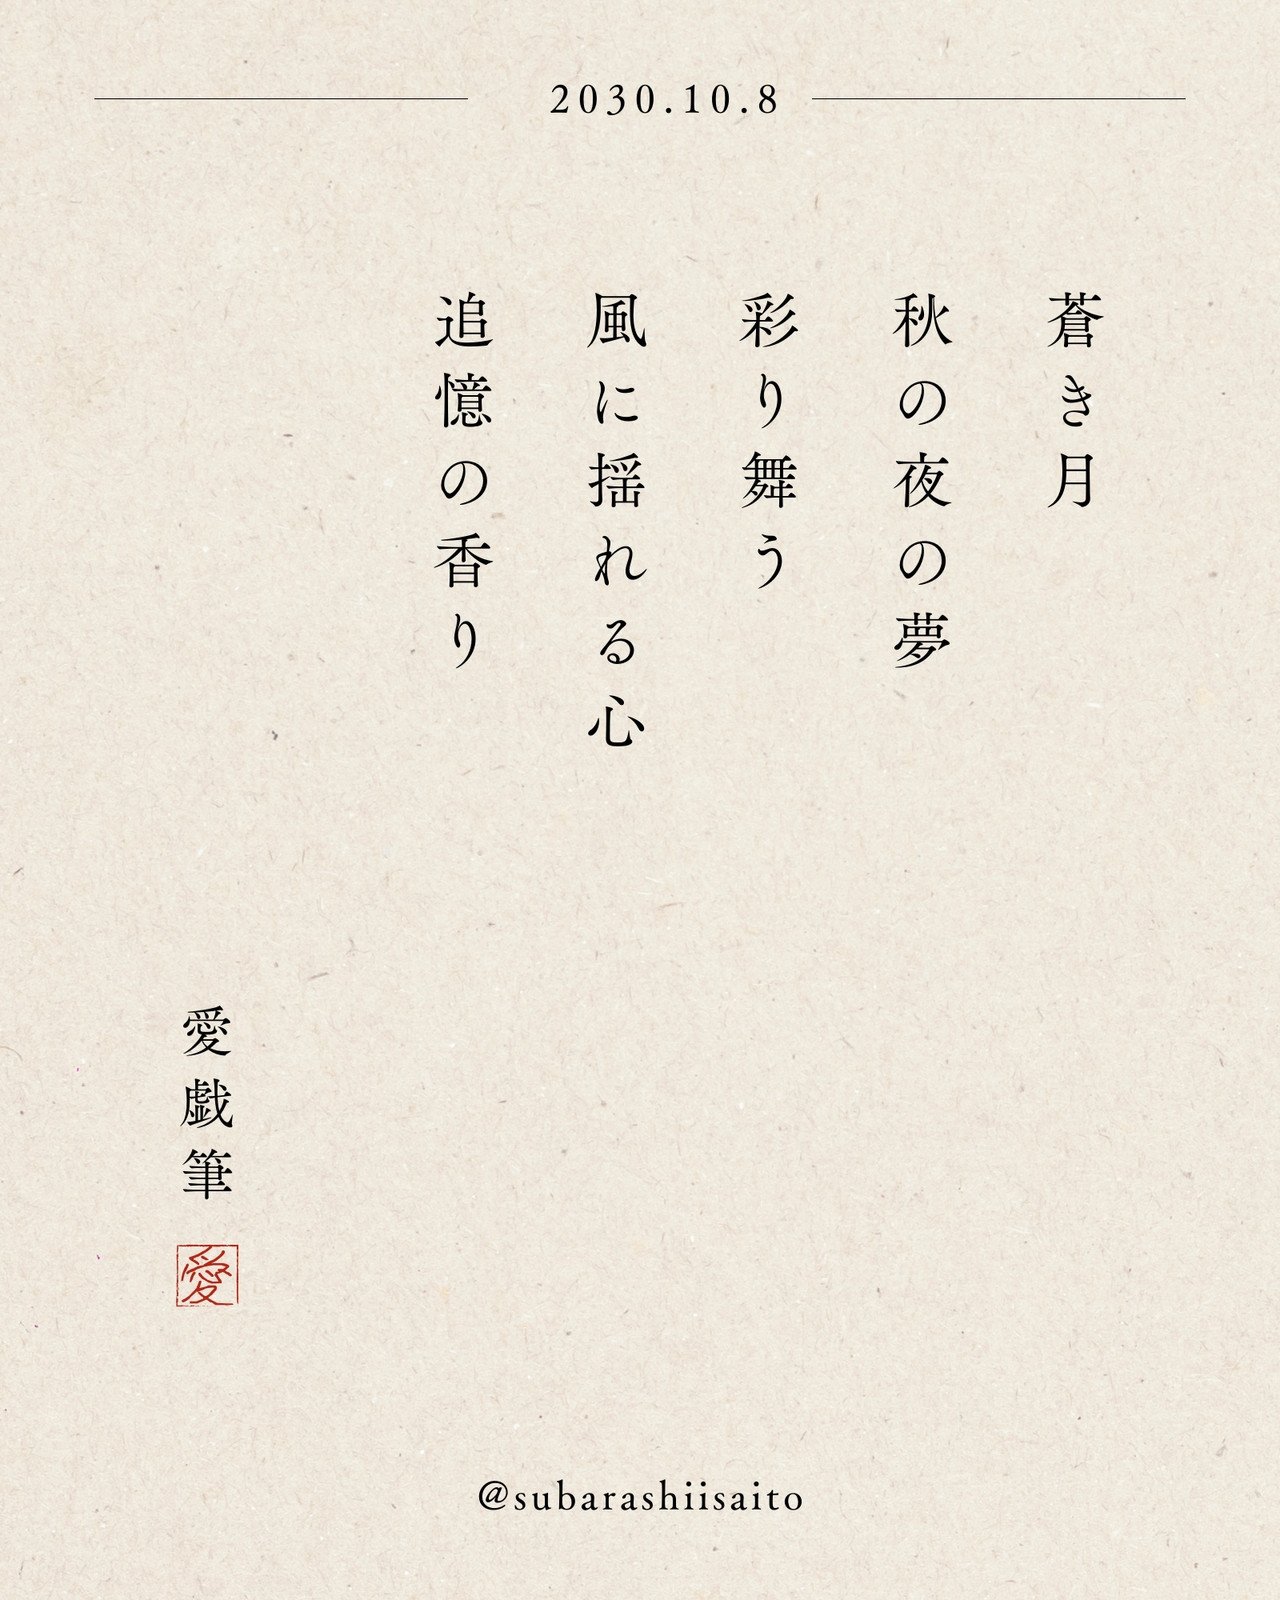 2030.10.8
蒼き月
秋の夜の夢
彩り舞う
風に揺れる心
追憶の香り
愛戯筆
愛
@subarashiisaito